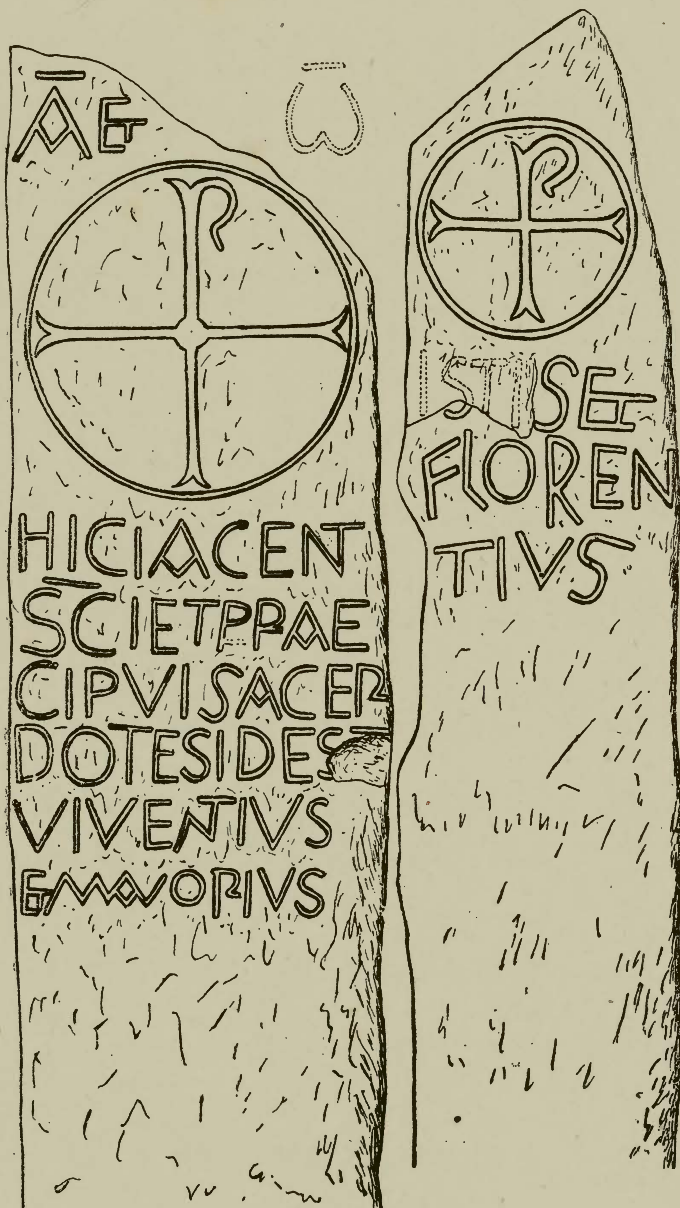 A ET
HIC IACENT
SCI ET PRAE
CIPVI SACER
DOTES IDES
VIVENTIVS
ET MAVORIVS
S ET
FLOREN
TIVS